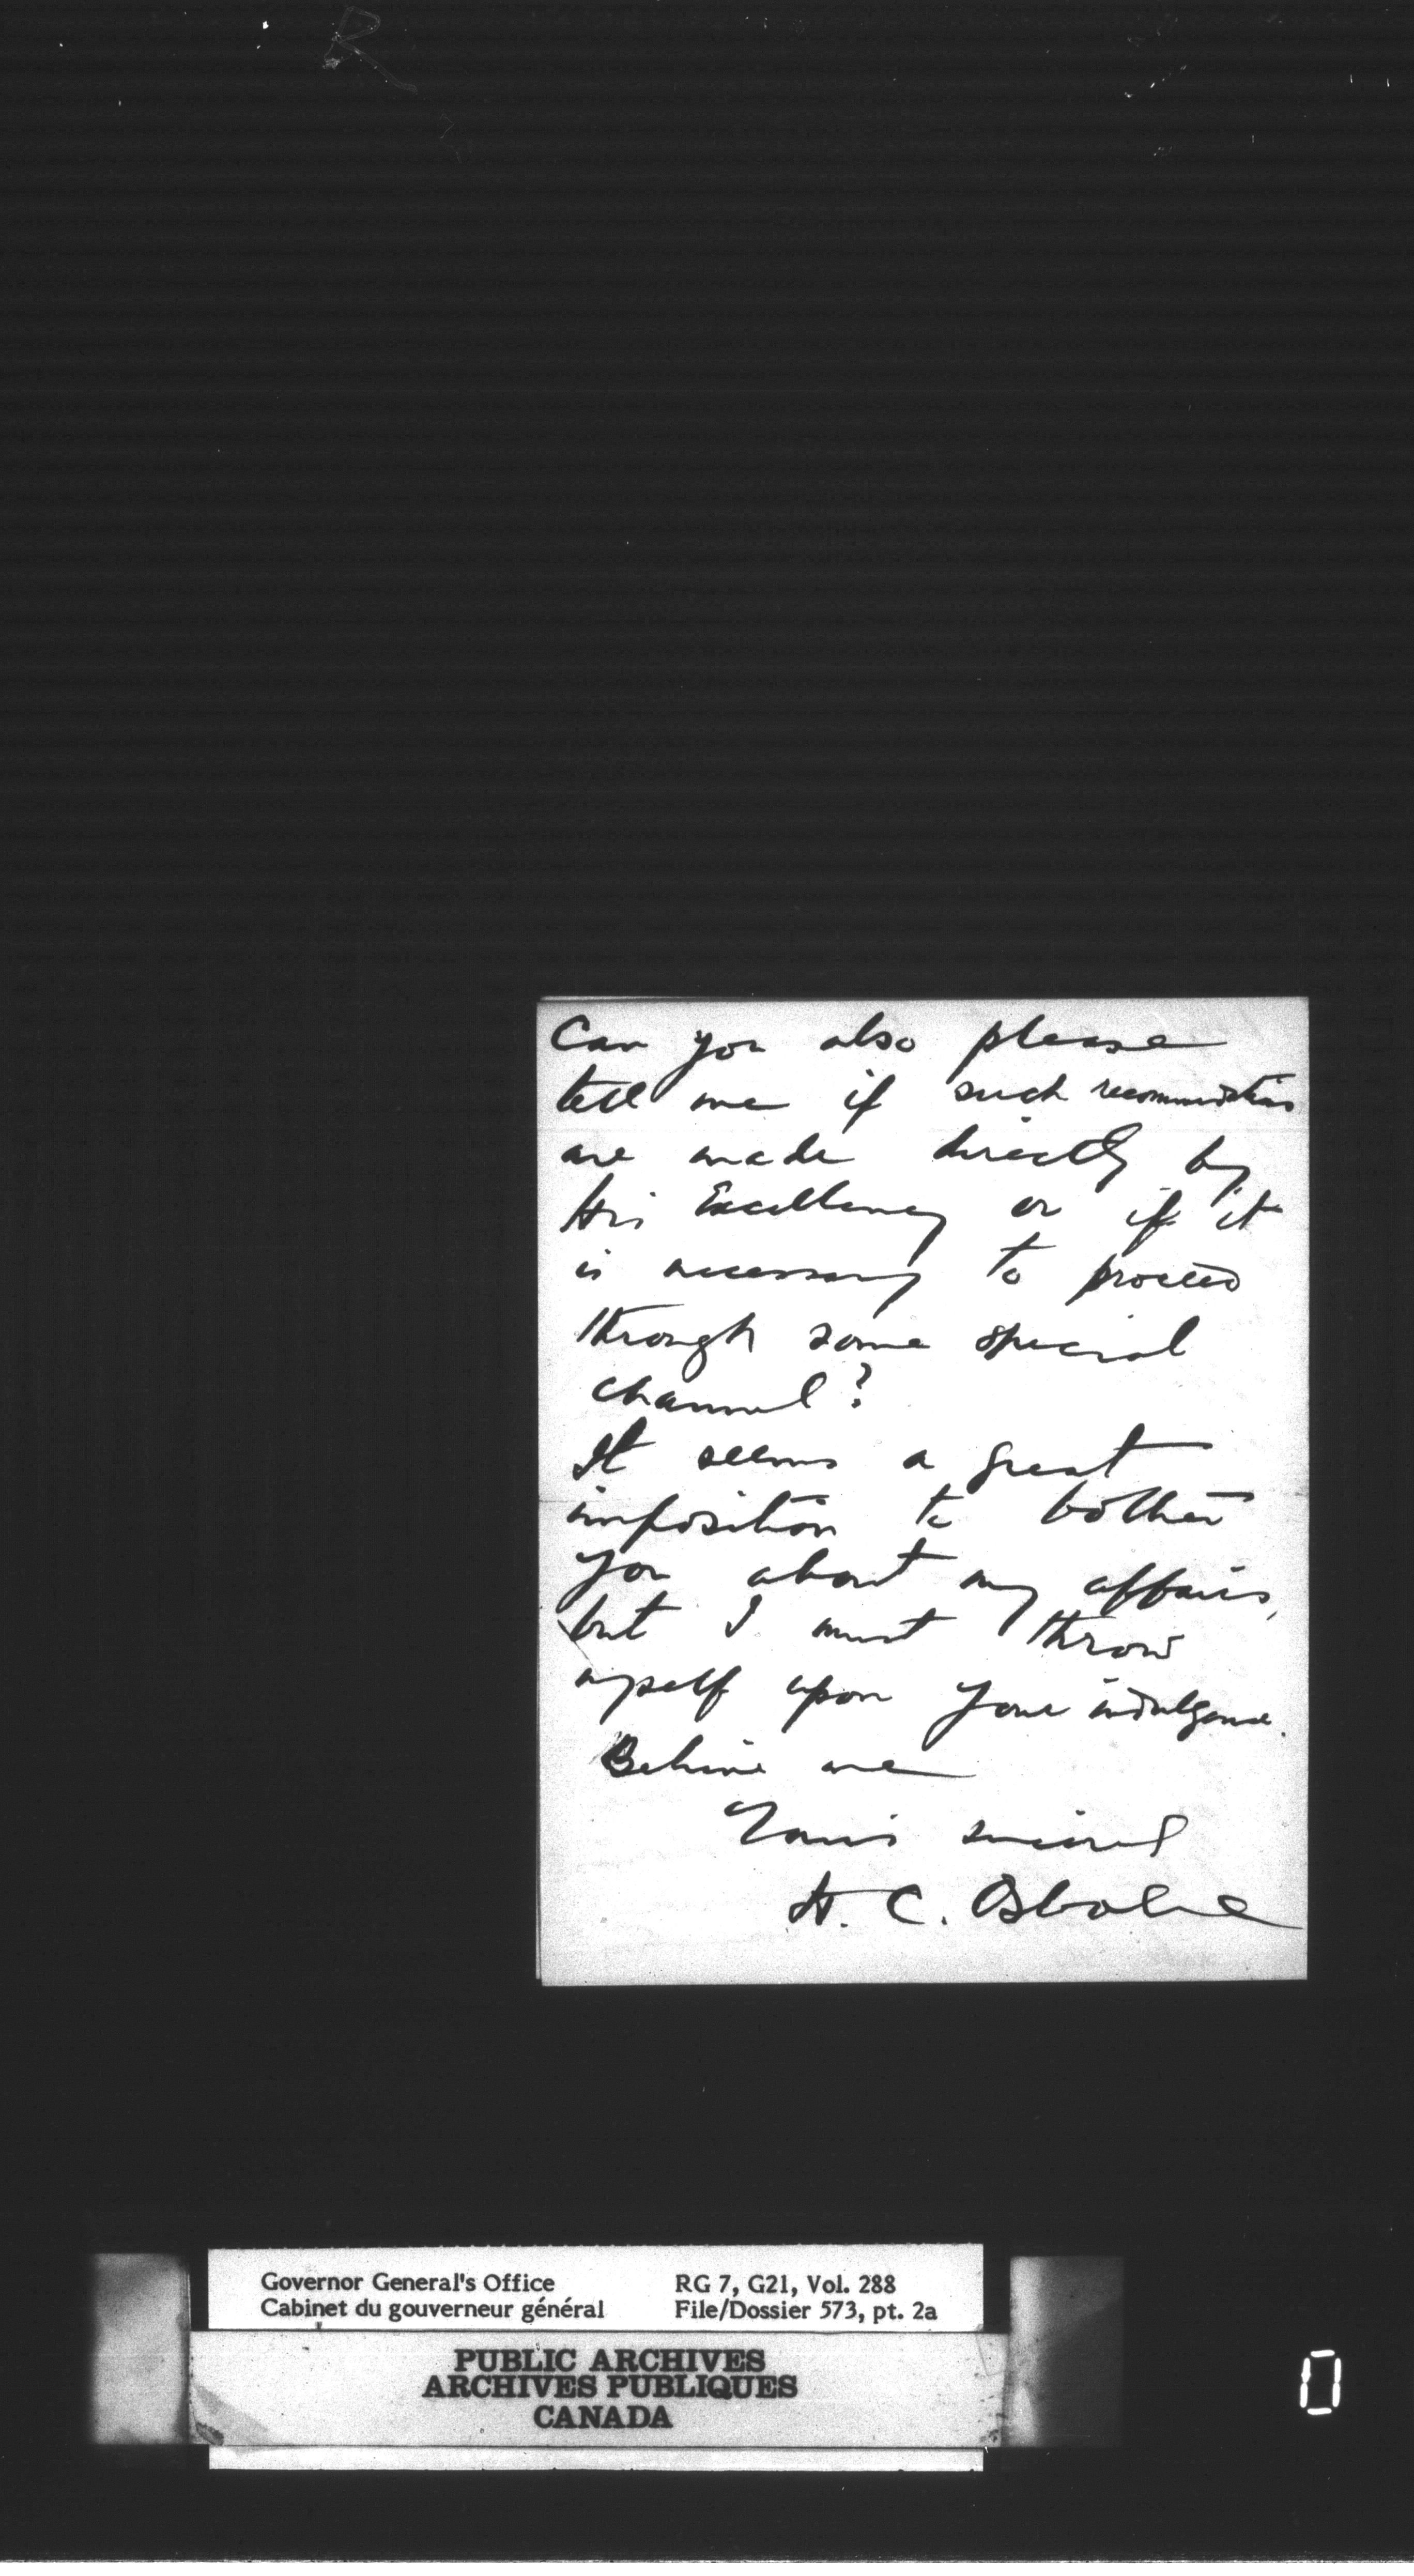 Can you also please
tell me if such recommendations
are made directly by
His Excellency or if it
is necessary to proceed
through some special
channel?
It seems a great
imposition to bother
you about my affairs,
but I must throw
myself upon your indulgence.
Believe me
Yours sincerely
H. C. Osborne
Governor General's Office
Cabinet du gouverneur général
RG 7, G21, Vol. 288
File/Dossier 573, pt. 2a
PUBLIC ARCHIVES
ARCHIVES PUBLIQUES
CANADA
0